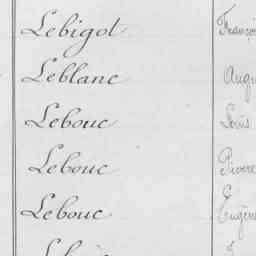 Lebigot
Leblanc Augu
Lebouc Louis
Lebouc Pierre
Lebouc Eugène